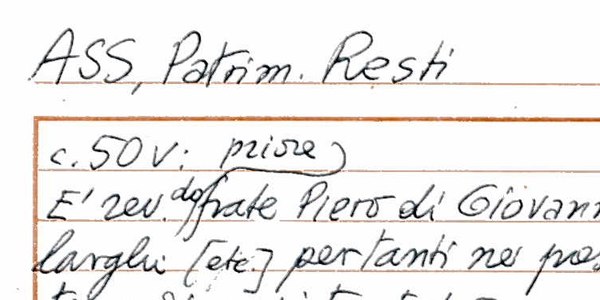 ASS, Patrim. Resti
c. 50 v: priore
E' rev.do frate Piero di Giovann
larghi [etc.] per tanti ne' pos